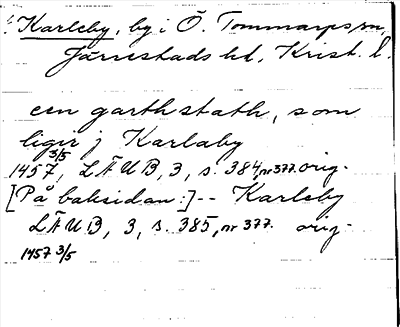 Karleby, by i Ö. Tommarps sn,
Järrestads hd, Krist. l.
een garthstath, som
ligir j Karlaby
1457 3/5, LÄUB, 3, s. 384, nr 377. orig.
[På baksidan:] -- Karleby
LÄUB, 3, s. 385, nr 377. orig.
1457 3/5